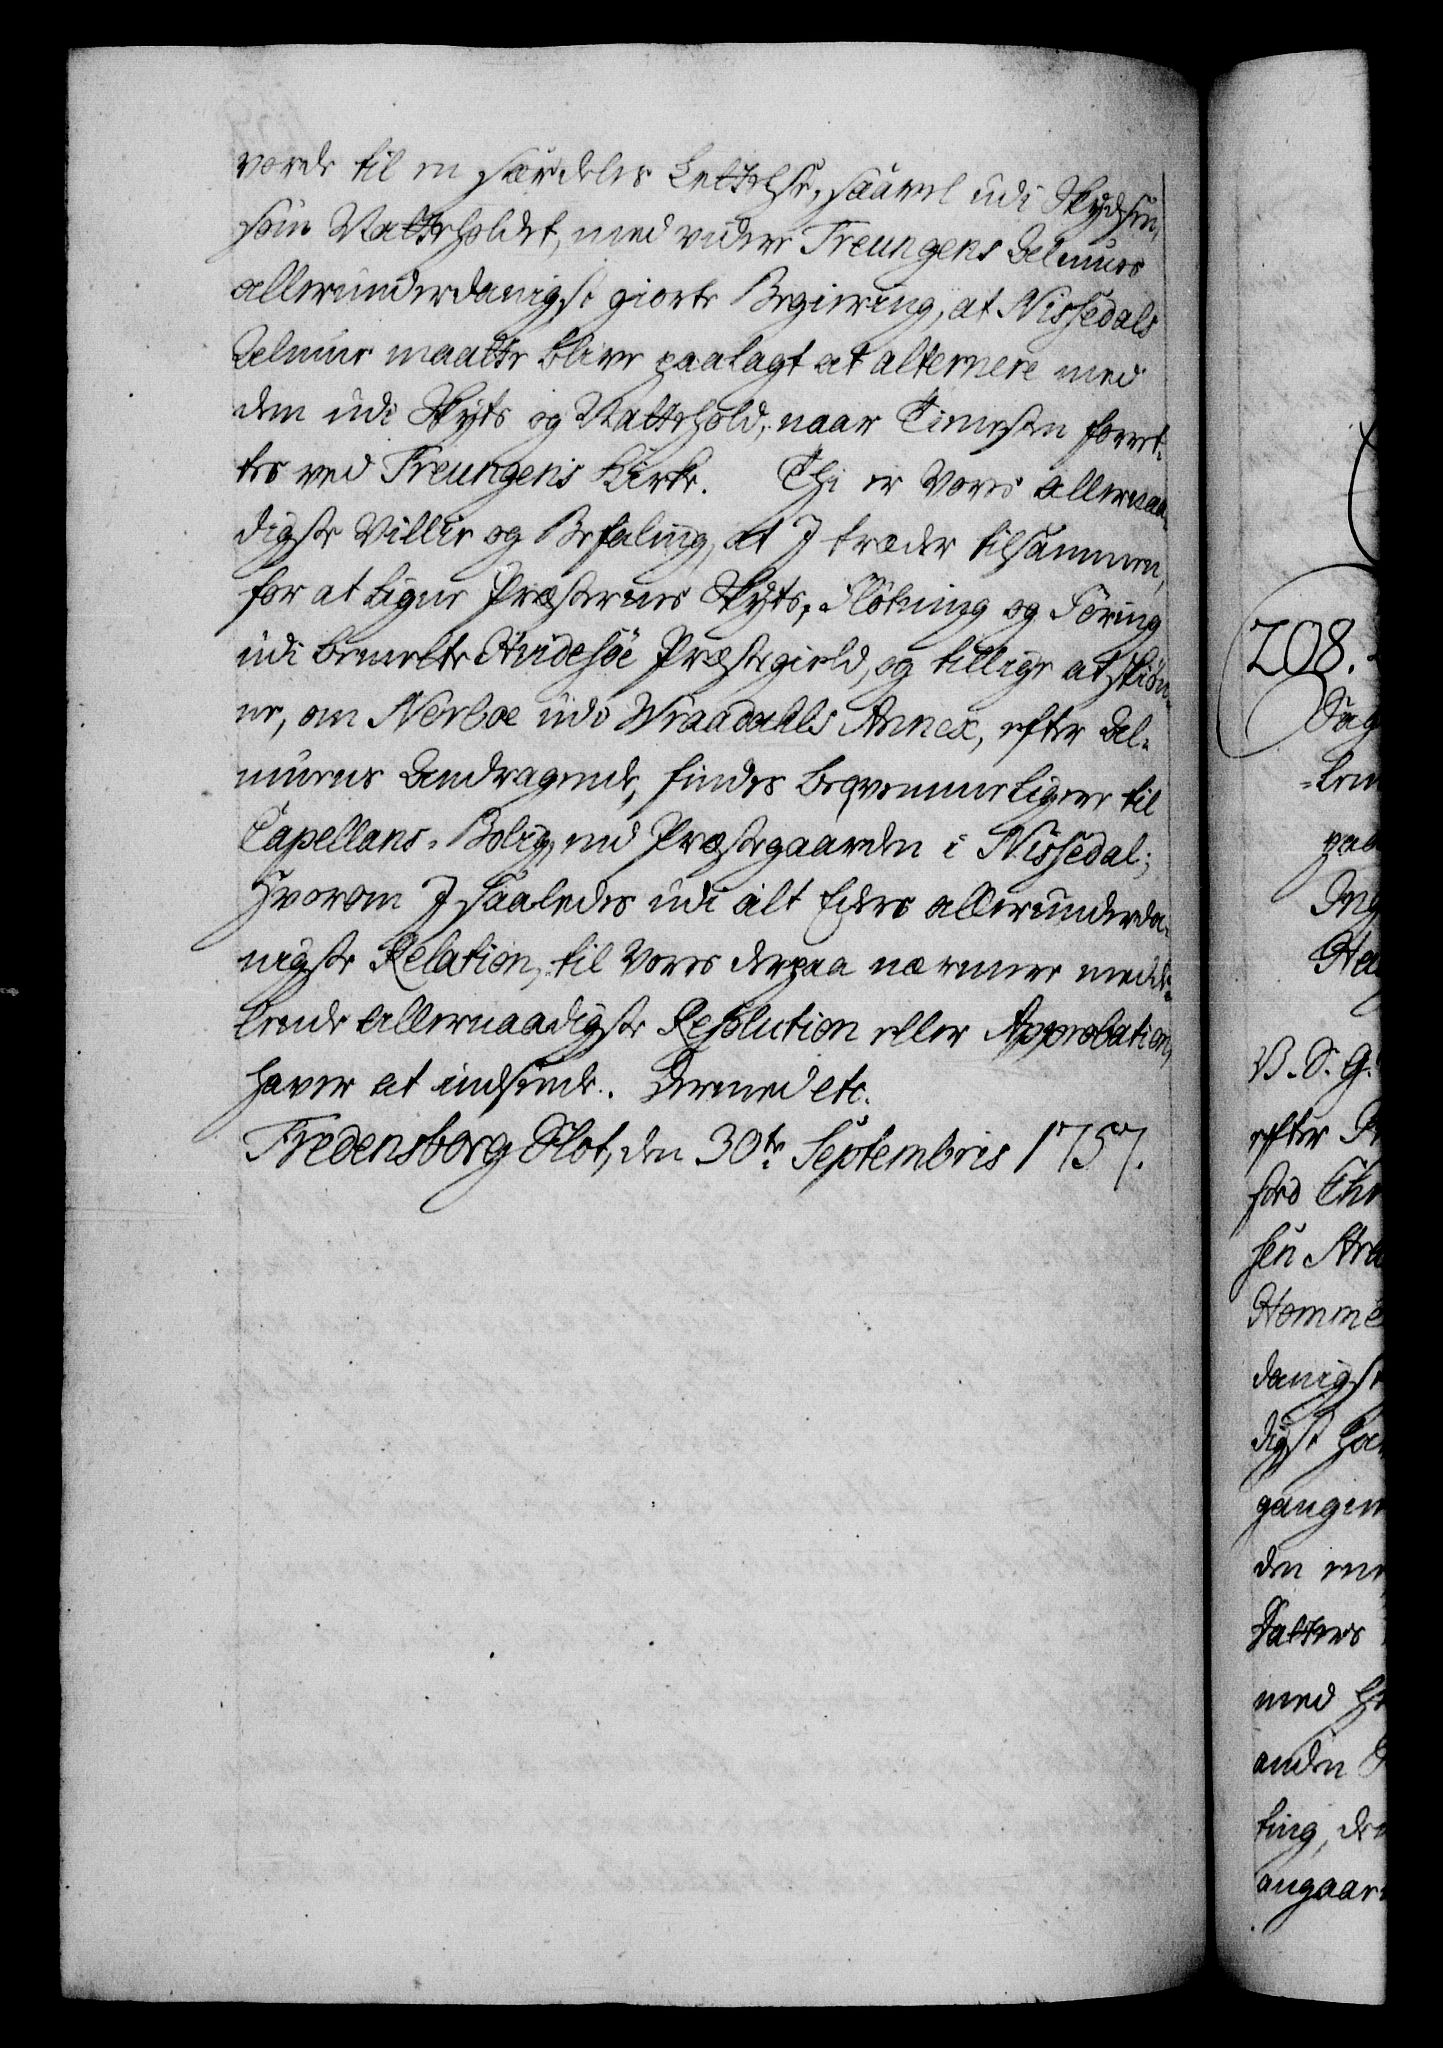 vorde til en særdeles Lettelse, saavel udi Skydsen,
som Natteholdet, med videre Treungens Almues
allerunderdanigst giorte Begiering, at Nissedals
Almue maatte blive paalagt at alternere med
dem udi Skyts og Nattehold, naar Tienesten forret-
tes ved Treungens Kirke. Thi er Vores allernaa-
digste Villie og Befaling, at I træder tilsammen,
for at ligne Præsternes Skyts, Flötning og Föring
udi bemelte Hvidesöe Præstegield, og tillige at skiön-
ne, om Nerboe udi Wraadahls Annex, efter Al-
muens Andragende, findes beqvemmeligere til
Capellans-Bolig, end Præstegaarden i Nissedal;
Hvorom I saaledes udi alt Eders allerunderda-
nigste Relation, til Vores derpaa nærmere medde-
lende allernaadigste Resolution eller Approbation,
haver at indsende. Dermed etc.
Fredensborg Slot, den 30te Septembris 1757.
208.
V. S. G.
efter
ford
sen
Homme
danigst
digst
gangen
den
Fatters
med
anden
ting,
angaar